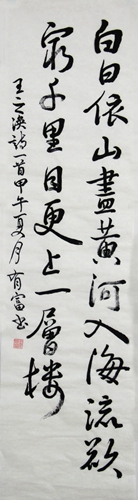 白日依山盡黃河入海流欲
窮千里目更上一層樓
王之渙詩一首甲午夏月有富书